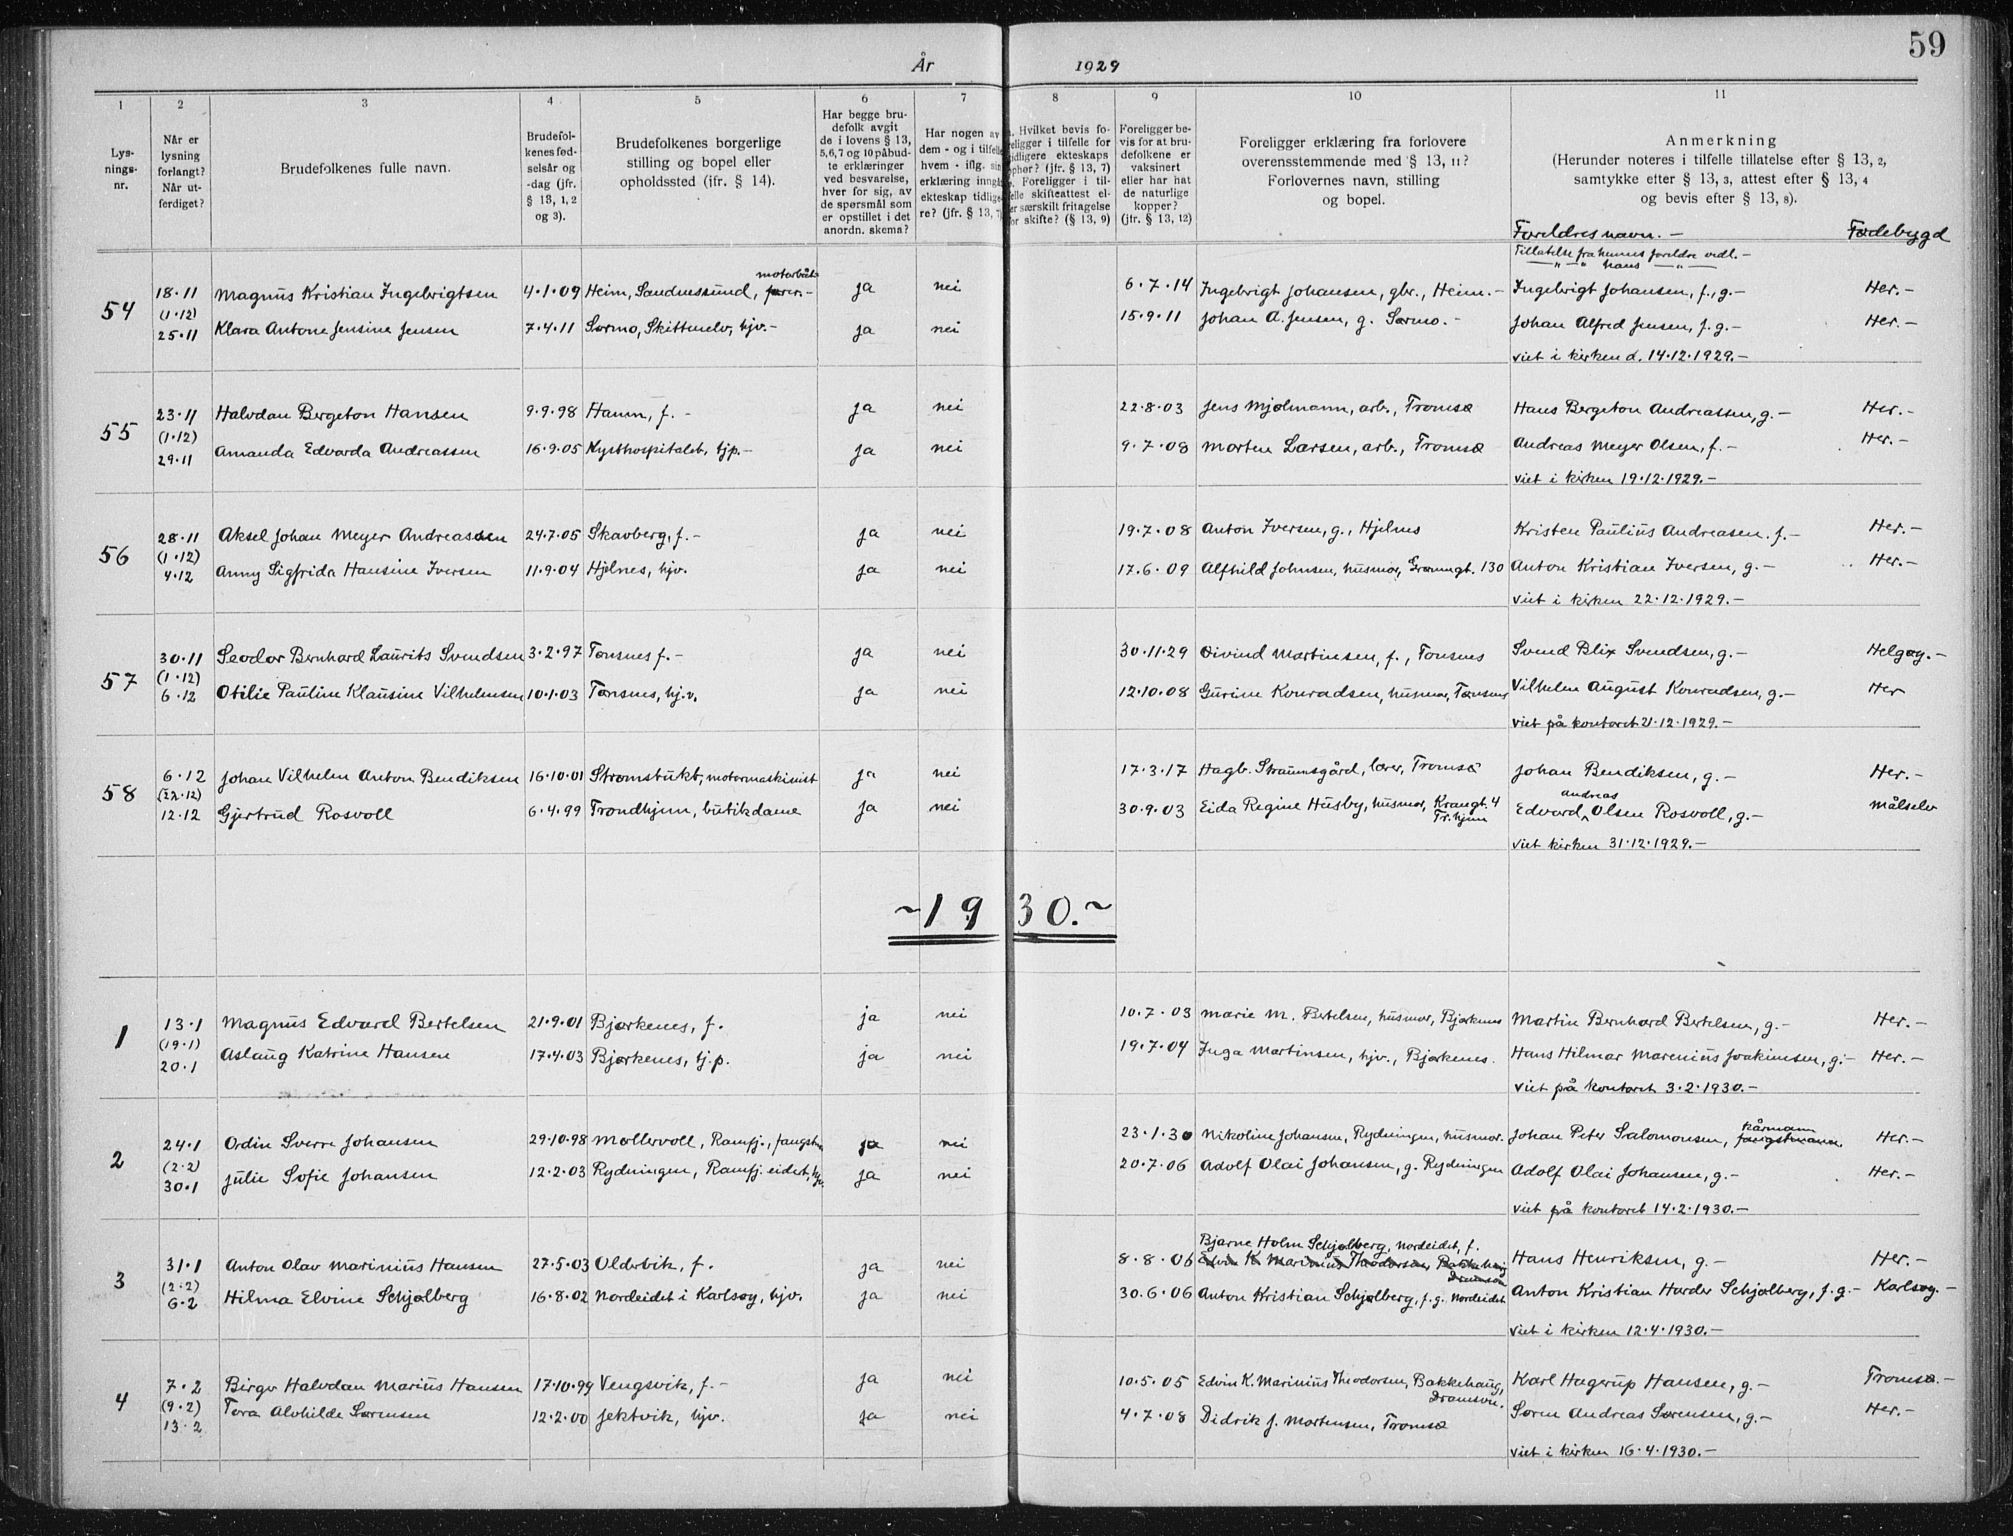 59
År 1929
1 2 3 4 5 6 7 8 9 10 11
Lysnings-nr.
Når er lysning forlangt? Når utferdiget?
Brudefolkenes fulle navn.
Brudefolkenes fødselsår og -dag (jfr. § 13, 1, 2 og 3).
Brudefolkenes borgerlige stilling og bopel eller opholdssted (jfr. § 14).
Har begge brudefolk avgit de i lovens § 13, 5, 6, 7 og 10 påbudte erklæringer ved besvarelse, hver for sig, av de spørsmål som er opstillet i det anordn. skema?
Har nogen av dem - og i tilfelle hvem - iflg. sin erklæring inngått ekteskap tidligere? (jfr. § 13, 7)
Hvilket bevis foreligger i tilfelle for tidligere ekteskaps ophør? (jfr. § 13, 7) Foreligger i tilfelle skifteattest eller særskilt fritagelse for skifte? (§ 13, 9)
Foreligger bevis for at brudefolkene er vaksinert eller har hat de naturlige kopper? (jfr. § 13, 12)
Foreligger erklæring fra forlovere overensstemmende med § 13, 11? Forlovernes navn, stilling og bopel.
Anmerkning (Herunder noteres i tilfelle tillatelse efter § 13, 2, samtykke efter § 13, 3, attest efter § 13, 4 og bevis efter § 13, 8).
Foreldres navn. - Fødebygd
Tillatelse fra hennes foreldre vedl. -
-"- -"- hans -"-
54 18.11 Magnus Kristian Ingebrigtsen 4.1.09 Heim, Sandnessund, motorbåtfører. - ja nei 6.7.14 Ingebrigt Johansen, gbr., Heim. - Ingebrigt Johansen, f., g. - Her. -
(1.12)
25.11 Klara Antone Jensine Jensen 7.4.11 Sørmo, Skittenelv, hjv. - ja nei 15.9.11 Johan A. Jensen, g. Sørmo. - Johan Alfred Jensen, f. g. - Her. -
viet i kirken d. 14.12.1929. -
55 23.11 Halvdan Bergeton Hansen 9.9.98 Hamn, f. - ja nei 22.8.03 Jens Mjølmann, arb., Tromsø Hans Bergeton Andreassen, g. - Her. -
(1.12)
29.11 Amanda Edvarda Andreassen 16.9.05 Kysthospitalet, tjp. - ja nei 9.7.08 Morten Larsen, arb., Tromsø Andreas Meyer Olsen, f. - Her. -
viet i kirken 19.12.1929. -
56 28.11 Aksel Johan Meyer Andreassen 24.7.05 Skavberg, f. - ja nei 19.7.08 Anton Iversen, g., Hjelnes Kristen Paulius Andreasen. f. - Her. -
(1.12)
4.12 Anny Sigfrida Hansine Iversen 11.9.04 Hjelnes, hjv. ja nei 17.6.09 Alfhild Johnsen, husmor, Grønnegt. 130 Anton Kristian Iversen, g. - Her. -
viet i kirken 22.12.1929. -
57 30.11 Seodor Bernhard Laurits Svendsen 3.2.97 Tønsnes f. - ja nei 30.11.29 Øivind Martinsen, f., Tønsnes Svend Blix Svendsen, g. - Helgøy. -
(1.12)
6.12 Otilie Pauline Klausine Vilhelmsen 10.1.03 Tønsnes, hj.v. ja nei 12.10.08 Gurine Konradsen, husmor, Tønsnes Vilhelm August Konradsen, g. - Her
viet på kontoret 21.12.1929. -
58 6.12 Johan Vilhelm Anton Bendiksen 16.10.01 Strømsbukt, motormaskinist ja nei 17.3.17 Hagb. Straumsgård, lærer, Tromsø Johan Bendiksen, g. - Her. -
(22.12)
12.12 Gjertrud Rosvoll 6.4.99 Trondhjem, butikdame ja nei 30.9.03 Eida Regine Husby, husmor, Krangt. 4 Tr.hjem Edvard Andreas Olsen Rosvoll, g. - Målselv
viet kirken 31.12.1929. -
~ 1930. ~
1 13.1 Magnus Edvard Bertelsen 21.9.01 Bjørkenes, f. ja nei 10.7.03 Marie M. Bertelsen, husmor, Bjørkenes Martin Bernhard Bertelsen, g. - Her. -
(19.1)
20.1 Aslaug Katrine Hansen 17.4.03 Bjørkenes, tj.p. ja nei 19.7.04 Inga Martinsen, hjv., Bjørkenes. Hans Hilmar Marenius Joakimsen, g. - Her. -
viet på kontoret 3.2.1930. -
2 24.1 Ordin Sverre Johansen 29.10.98 Møllervoll, Ramfj., fangstm. ja nei 23.1.30 Nikoline Johansen, Rydningen, husmor. Johan Peter Salomonsen, fangstmann. kårmann Her. -
(2.2)
30.1 Julie Sofie Johansen 12.2.03 Rydningen, Ramfj.eidet, hjv. ja nei 20.7.06 Adolf Olai Johansen, g. Rydningen Adolf Olai Johansen, g. - Her. -
viet på kontoret 14.2.1930. -
3 31.1 Anton Olav Marinius Hansen 27.5.03 Oldervik, f. ja nei 8.8.06 Bjarne Holm Schjølberg, Nordeidet, f. Edvin K. Marinius Theodorsen, Bakkehaug Dramsøn Hans Henriksen, g. - Her. -
(2.2)
6.2 Hilma Elvine Schjølberg 16.8.02 Nordeidet i Karlsøy, hjv. ja nei 30.6.06 Anton Kristian Schjølberg, f. g. Nordeidet Anton Kristian Harder Schjølberg, f. g. - Karlsøy. -
viet i kirken 12.4.1930. -
4 7.2 Birger Halvdan Marius Hansen 17.10.99 Vengsvik, f. - ja nei 10.5.05 Edvin K. Marinius Theodorsen, Bakkehaug, Dramsvn. Karl Hagerup Hansen, g. - Tromsø. -
(9.2)
13.2 Tora Alvhilde Sørensen 12.2.00 Jektvik, hjv. ja nei 4.7.08 Didrik J. Mortensen, Tromsø Søren Andreas Sørensen, g. - Her. -
viet i kirken 16.4.1930. -